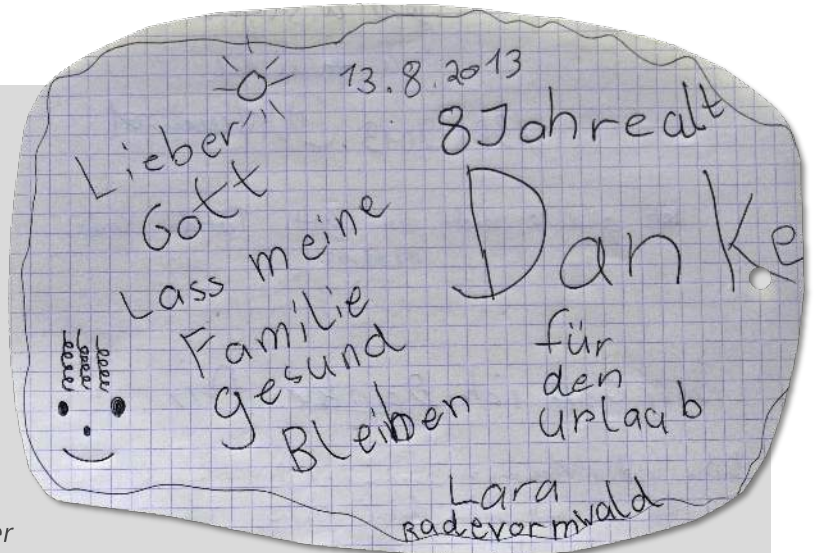 13.8.2013
8 Jahre alt
Lieber
Gott
Lass meine
Familie
gesund
Bleiben
Danke
für
den
urlaub
Lara
Radevormwald
er